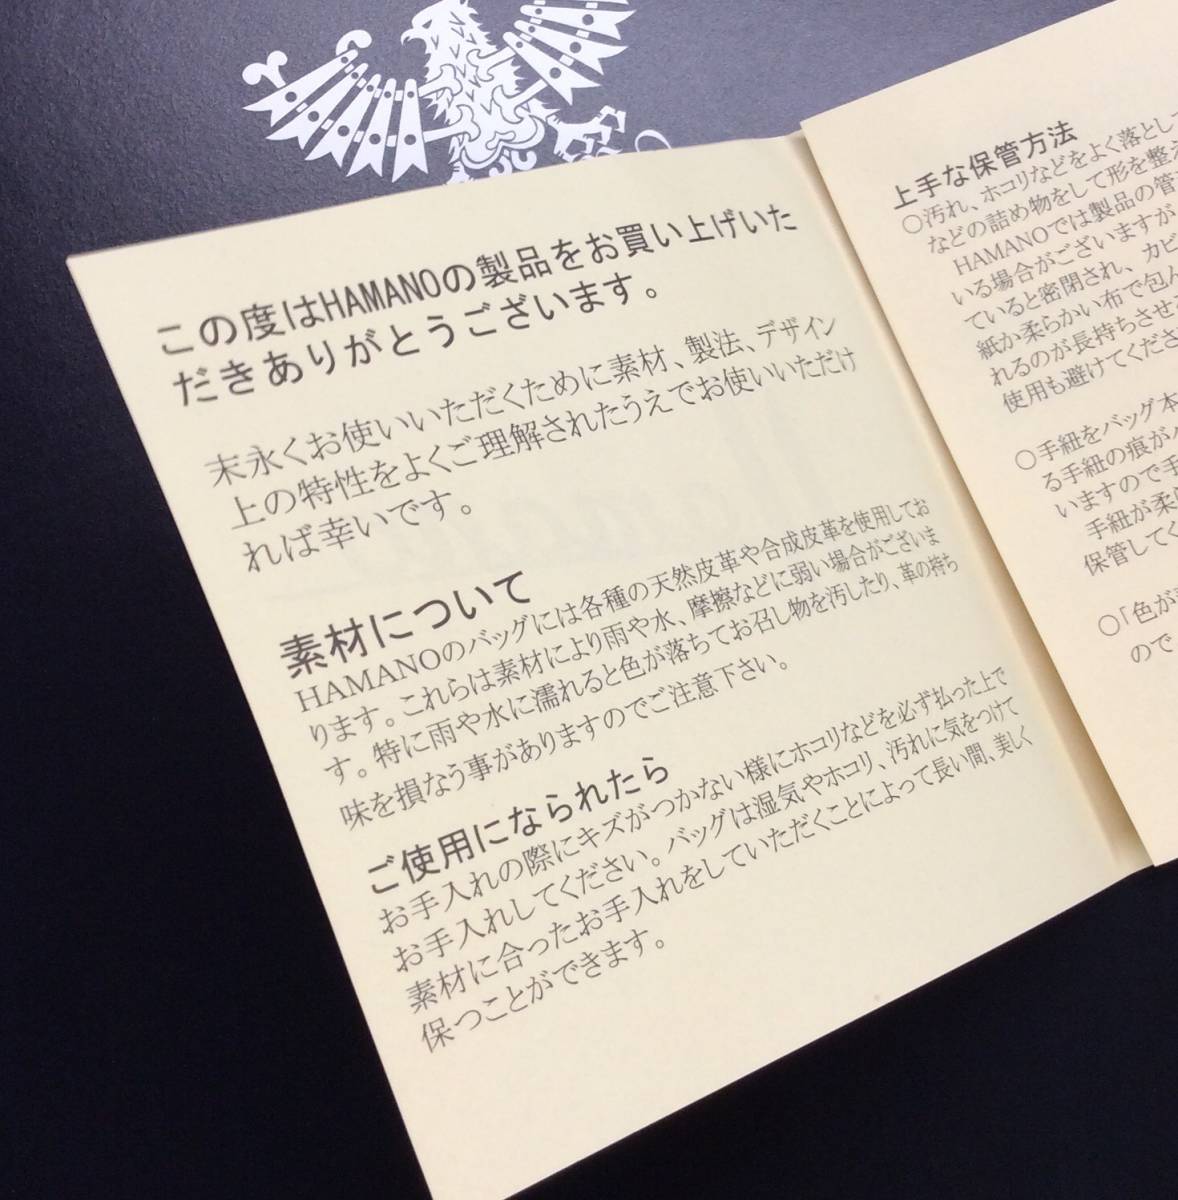 この度はHAMANOの製品をお買い上げいた
だきありがとうございます。
末永くお使いいただくために素材、製法、デザイン
上の特性をよくご理解されたうえでお使いいただけ
れば幸いです。
素材について
HAMANOのバッグには各種の天然皮革や合成皮革を使用してお
ります。これらは素材により雨や水、摩擦などに弱い場合がございま
す。特に雨や水に濡れると色が落ちてお召し物を汚したり、革の持ち
味を損なう事がありますのでご注意下さい。
ご使用になられたら
お手入れの際にキズがつかない様にホコリなどを必ず払った上で
お手入れしてください。バッグは湿気やホコリ、汚れに気をつけて
素材に合ったお手入れをしていただくことによって長い間、美しく
保つことができます。
上手な保管方法
○汚れ、ホコリなどをよく落として
などの詰め物をして形を整え
HAMANOでは製品の管
いる場合がございますが
ていると密閉され、カビ
紙か柔らかい布で包ん
れるのが長持ちさせ
使用も避けてくださ
○手紐をバッグ本
る手紐の痕が
いますので手
手紐が柔
保管してく
○「色が
ので